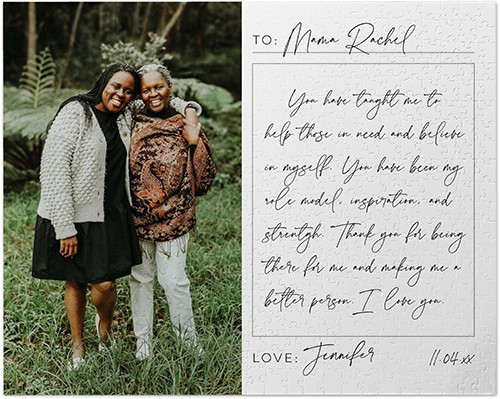 TO: Mama Rachel
You have taught me to
help those in need and believe
in myself. You have been my
role model, inspiration, and
strentgh. Thank you for being
there for me and making me a
better person. I love you.
LOVE: Jennifer 11.04.xx